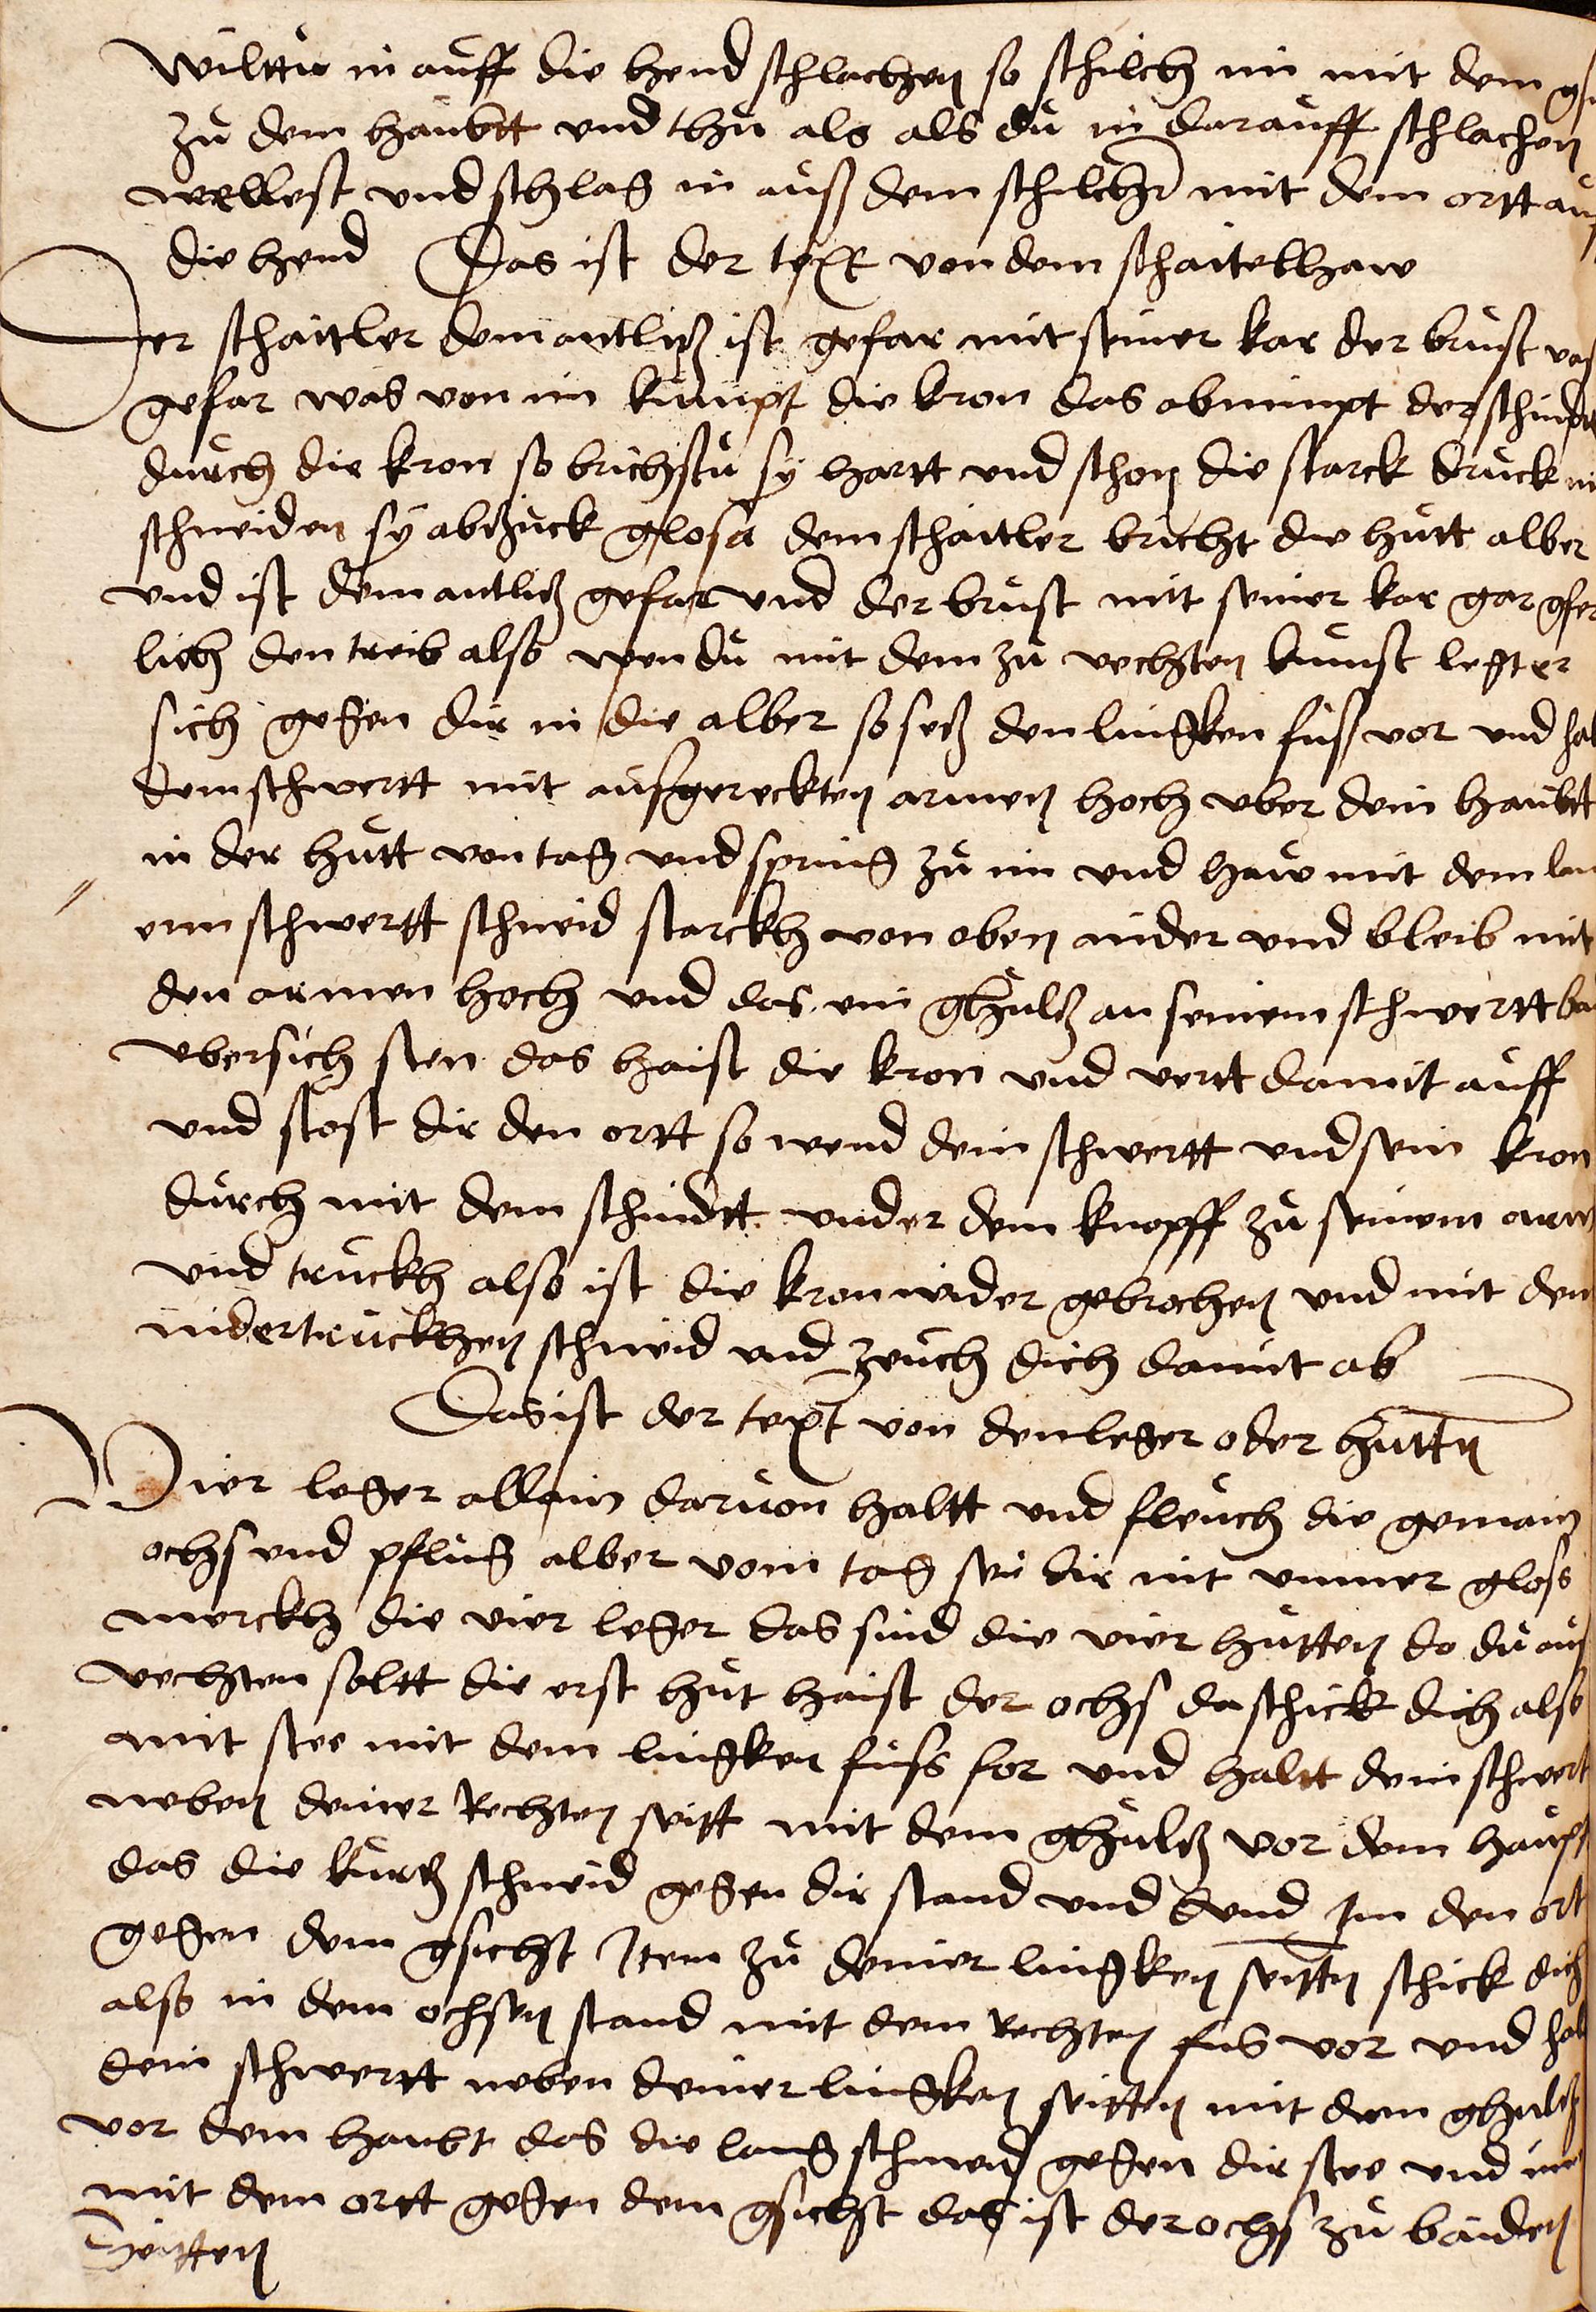 wiltu in auff die hend schlachen so schilch im mit dem
zu dem haubtt vnd thu als als du in darauff schlachen
wellest vnd schlag in auß dem schilcher mit dem ortt
die hend Das ist der text von dem schaitellhaw
Der schaitler dem antlitz ist gefar mit seiner kar der brust
gefar was von im kumpt die kron das abnimpt der
durch die kron so brichstu sy hartt vnd schon die starck druck
schneiden sy abzuck glosa dem schaitler bricht die hutt alber
vnd ist dem antlitz gefar vnd der brust mit seiner kar gar gfer
lich den treib also wen du mit dem zu vechten kumst legt er
sich gegen dir in die alber so setz den lingken fuß vor vnd
dem schwertt mit außgereckten armen hoch vber dem haubtt
in der hutt von tag vnd spring zu im vnd haw mit dem
enn schwertt schneid starckh von oben nider vnd bleib mit
den armen hoch vnd das ein ghultz an seinem schwertt
vbersich sten das haist die kron vnd vertt damit auff
vnd stost dir den ortt so wend dein schwertt vnd sein kron
durch mit dem schnidtt vnder dem knopff zu seinem
vnd truckh also ist die kron wider gebrochen vnd mit den
nidertruckhen schneid vnd zeuch dich damit ab
Das ist der text von den leger oder hutten
Vier leger allain daruon haltt vnd fleuch die gemain
ochs vnd pflug alber vom tag sei dir nit vnmer glosa
merckh die vier leger das sind die vier hutten do du
vechten soltt die erst hut haist der ochs da schick dich also
mit stee mit dem lingken fuss for vnd haltt dein schwert
neben deiner Rechten seitt mit dem ghultz vor dem
das die kurtz schneid gegen dir stand vnd heng Im den ort
gegen dem gsicht Item zu deiner lingken seitten schick dich
also in dem ochsen stand mit dem rechten fus vor vnd
dein schwertt neben deiner lingken seitten mit dem ghultz
vor dem haubt das die lang schneid gegen dir stee vnd
mit dem ortt gegen dem gsicht das ist der ochs zu baiden
Seitten